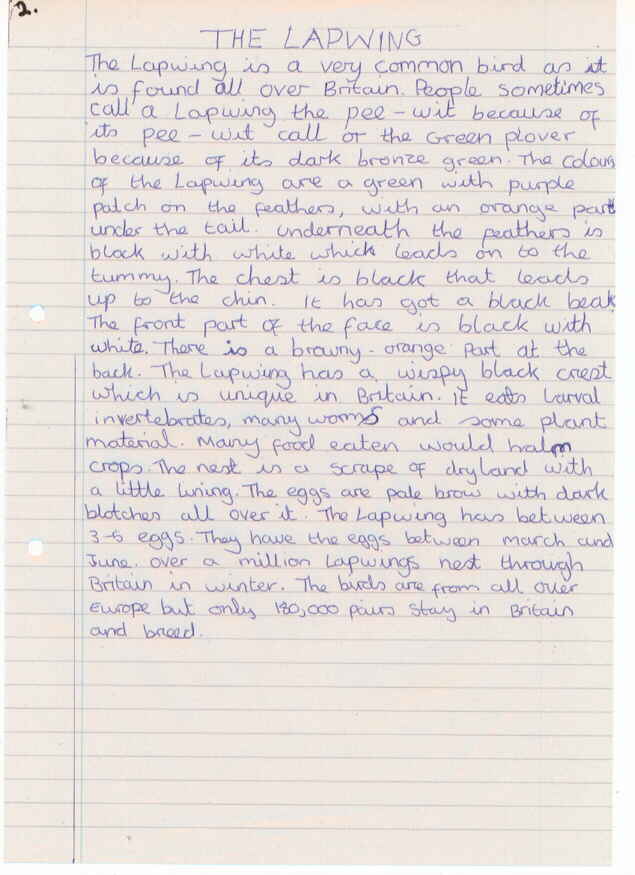 2.
THE LAPWING
The Lapwing is a very common bird as it
is found all over Britain. People sometimes
call a Lapwing the pee - wit because of
its pee - wit call or the Green plover
because of its dark bronze green. The colours
of the Lapwing are a green with purple
patch on the feathers, with an orange part
under the tail. underneath the feathers is
black with white which leads on to the
tummy. The chest is black that leads
up to the chin. It has got a black beak
The front part of the face is black with
white. There is a browny - orange part at the
back. The Lapwing has a wispy black crest
which is unique in Britain. it eats Larval
invertebrates, many worms and some plant
material. Many food eaten would halm
crops. The nest is a scrape of dryland with
a little lining. The eggs are pale brow with dark
blotches all over it. The Lapwing has between
3-5 eggs. They have the eggs between march and
June. over a million Lapwings nest through
Britain in winter. The birds are from all over
Europe but only 180,000 pairs stay in Britain
and breed.